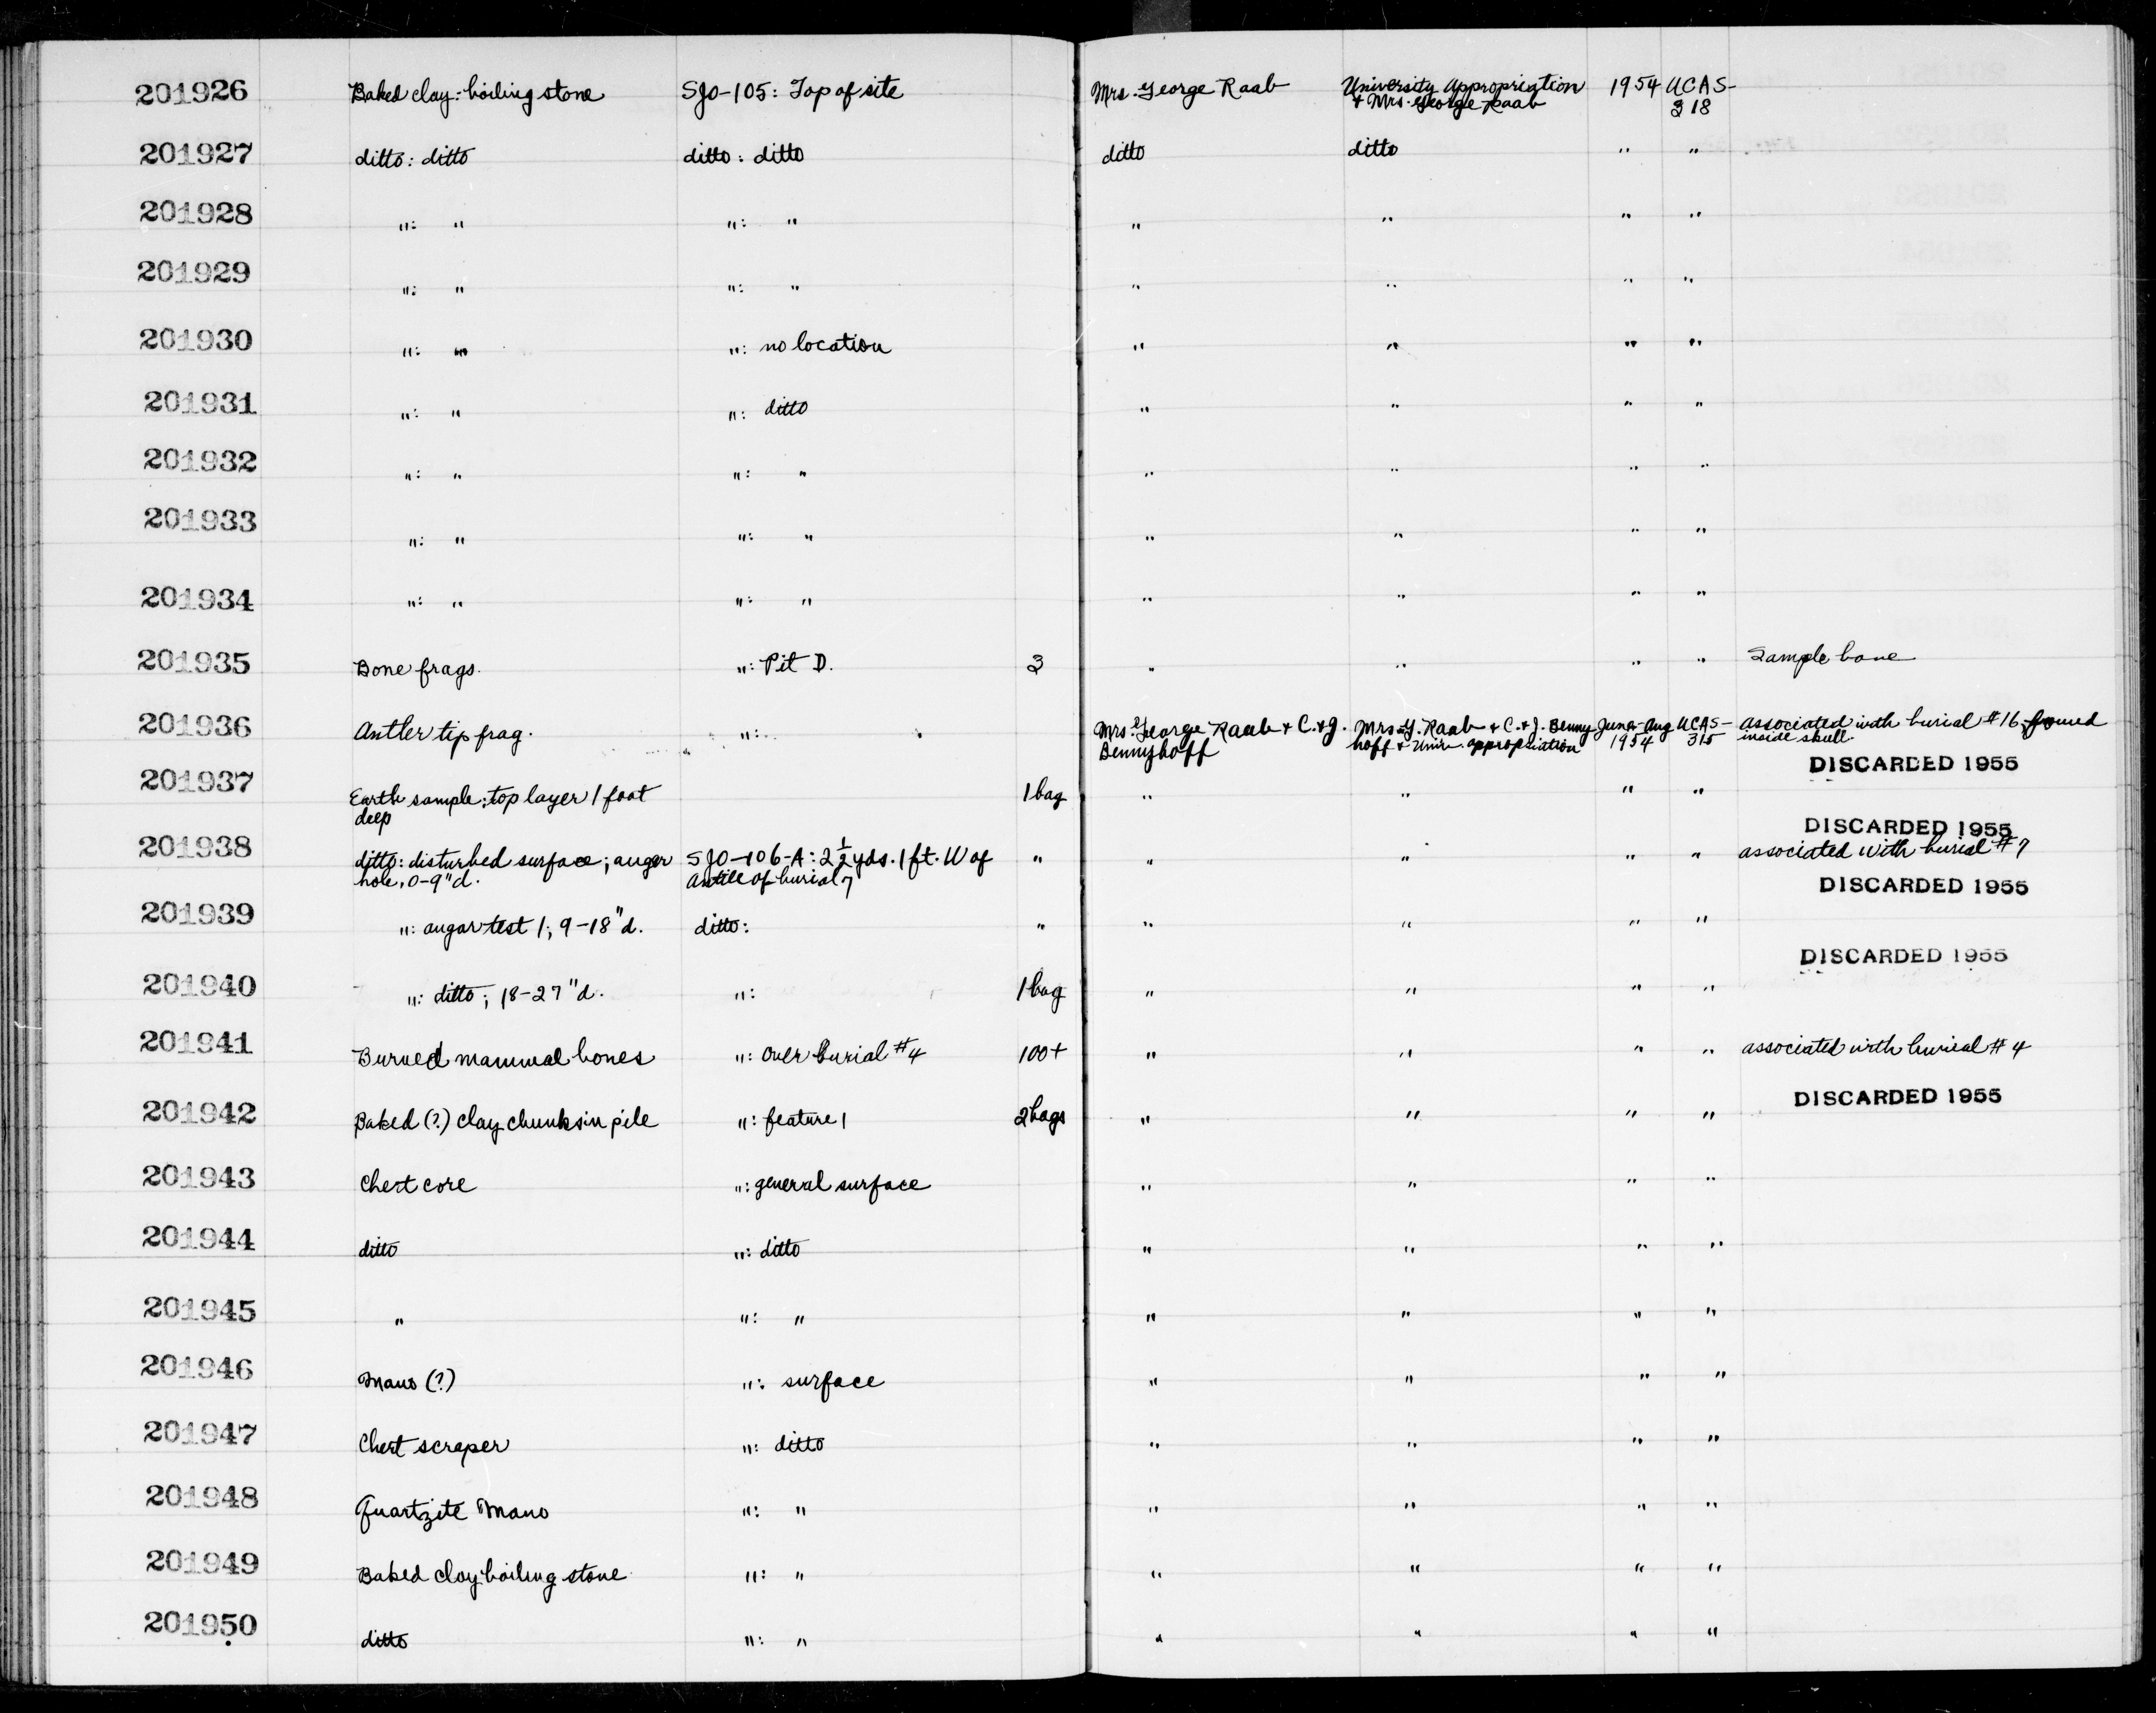 201926 Baked clay: boiling stone SJO-105: Top of site Mrs. George Raab University Appropriation 1954 UCAS-
+ Mrs. George Raab 318
201927 ditto: ditto ditto: ditto ditto ditto " "
201928 ": " ": " " " " "
201929 ": " ": " " " " "
201930 ": " ": no location " " " "
201931 ": " ": ditto " " " "
201932 ": " ": " " " " "
201933 ": " ": " " " " "
201934 ": " ": " " " " "
201935 Bone frags. ": Pit D. 3 " " " " Sample bone
201936 Antler tip frag. ": Mrs. George Raab + C. + J. Mrs. G. Raab + C. + J. Benny June-Aug UCAS- associated with burial #16, found
Bennyhoff hoff + Univ. appropriation 1954 315 inside skull.
DISCARDED 1955
201937 Earth sample: top layer 1 foot 1 bag " " " "
deep
DISCARDED 1955
201938 ditto: disturbed surface; auger SJO-106-A: 2 1/2 yds. 1 ft. W of " " " " " associated with burial #7
hole, 0-9"d. of burial 7
DISCARDED 1955
201939 ": augar test 1; 9-18"d. ditto: " " " " "
DISCARDED 1955
201940 ": ditto; 18-27"d. ": 1 bag " " " "
201941 Burned mammal bones ": over burial #4 100+ " " " " associated with burial #4
DISCARDED 1955
201942 Baked (?) clay chunks in pile ": feature 1 2 bags " " " "
201943 Chert core ": general surface " " " "
201944 ditto ": ditto " " " "
201945 " ": " " " " "
201946 Mano (?) ": surface " " " "
201947 Chert scraper ": ditto " " " "
201948 Quartzite Mano ": " " " " "
201949 Baked clay boiling stone ": " " " " "
201950 ditto ": " " " " "